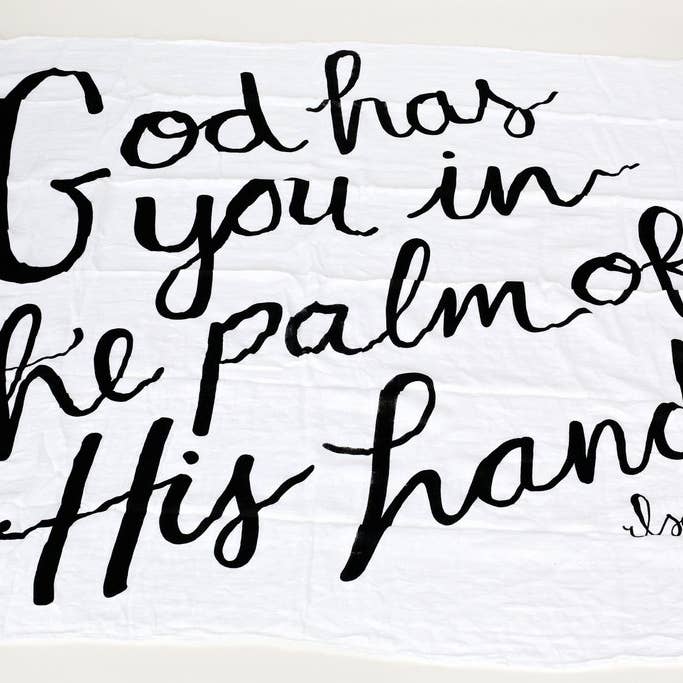 God has
you in
the palm of
His hand
Isa